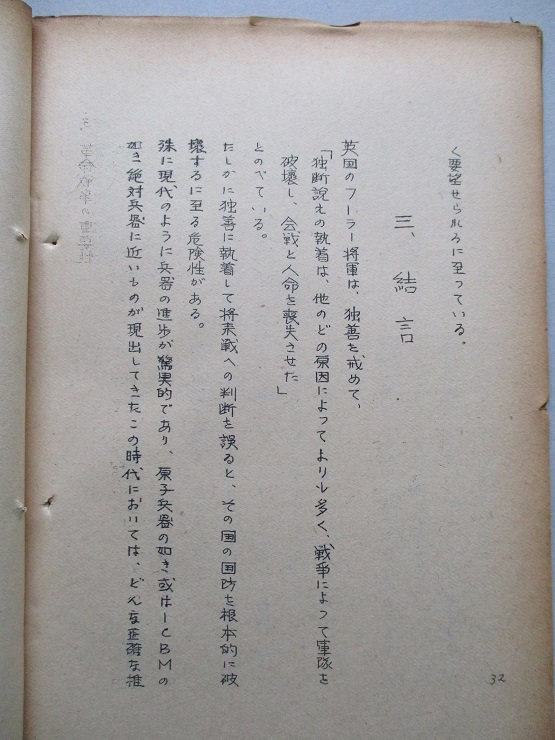 く要望せられるに至つている。
三、結言
英国のフーラー将軍は、独善を戒めて、
「独断説えの執着は、他のどの原因によつてより以多く、戦争によつて軍隊を
破壊し、会戦と人命を喪失させた」
とのべている。
たしかに独善に執着して将来戦への判断を誤ると、その国の国防を根本的に破
壊するに至る危険性がある。
殊に現代のように兵器の進歩が驚異的であり、原子兵器の如き或はICBMの
如き絶対兵器に近いものが現出してきたこの時代においては、どんな正確な推
32